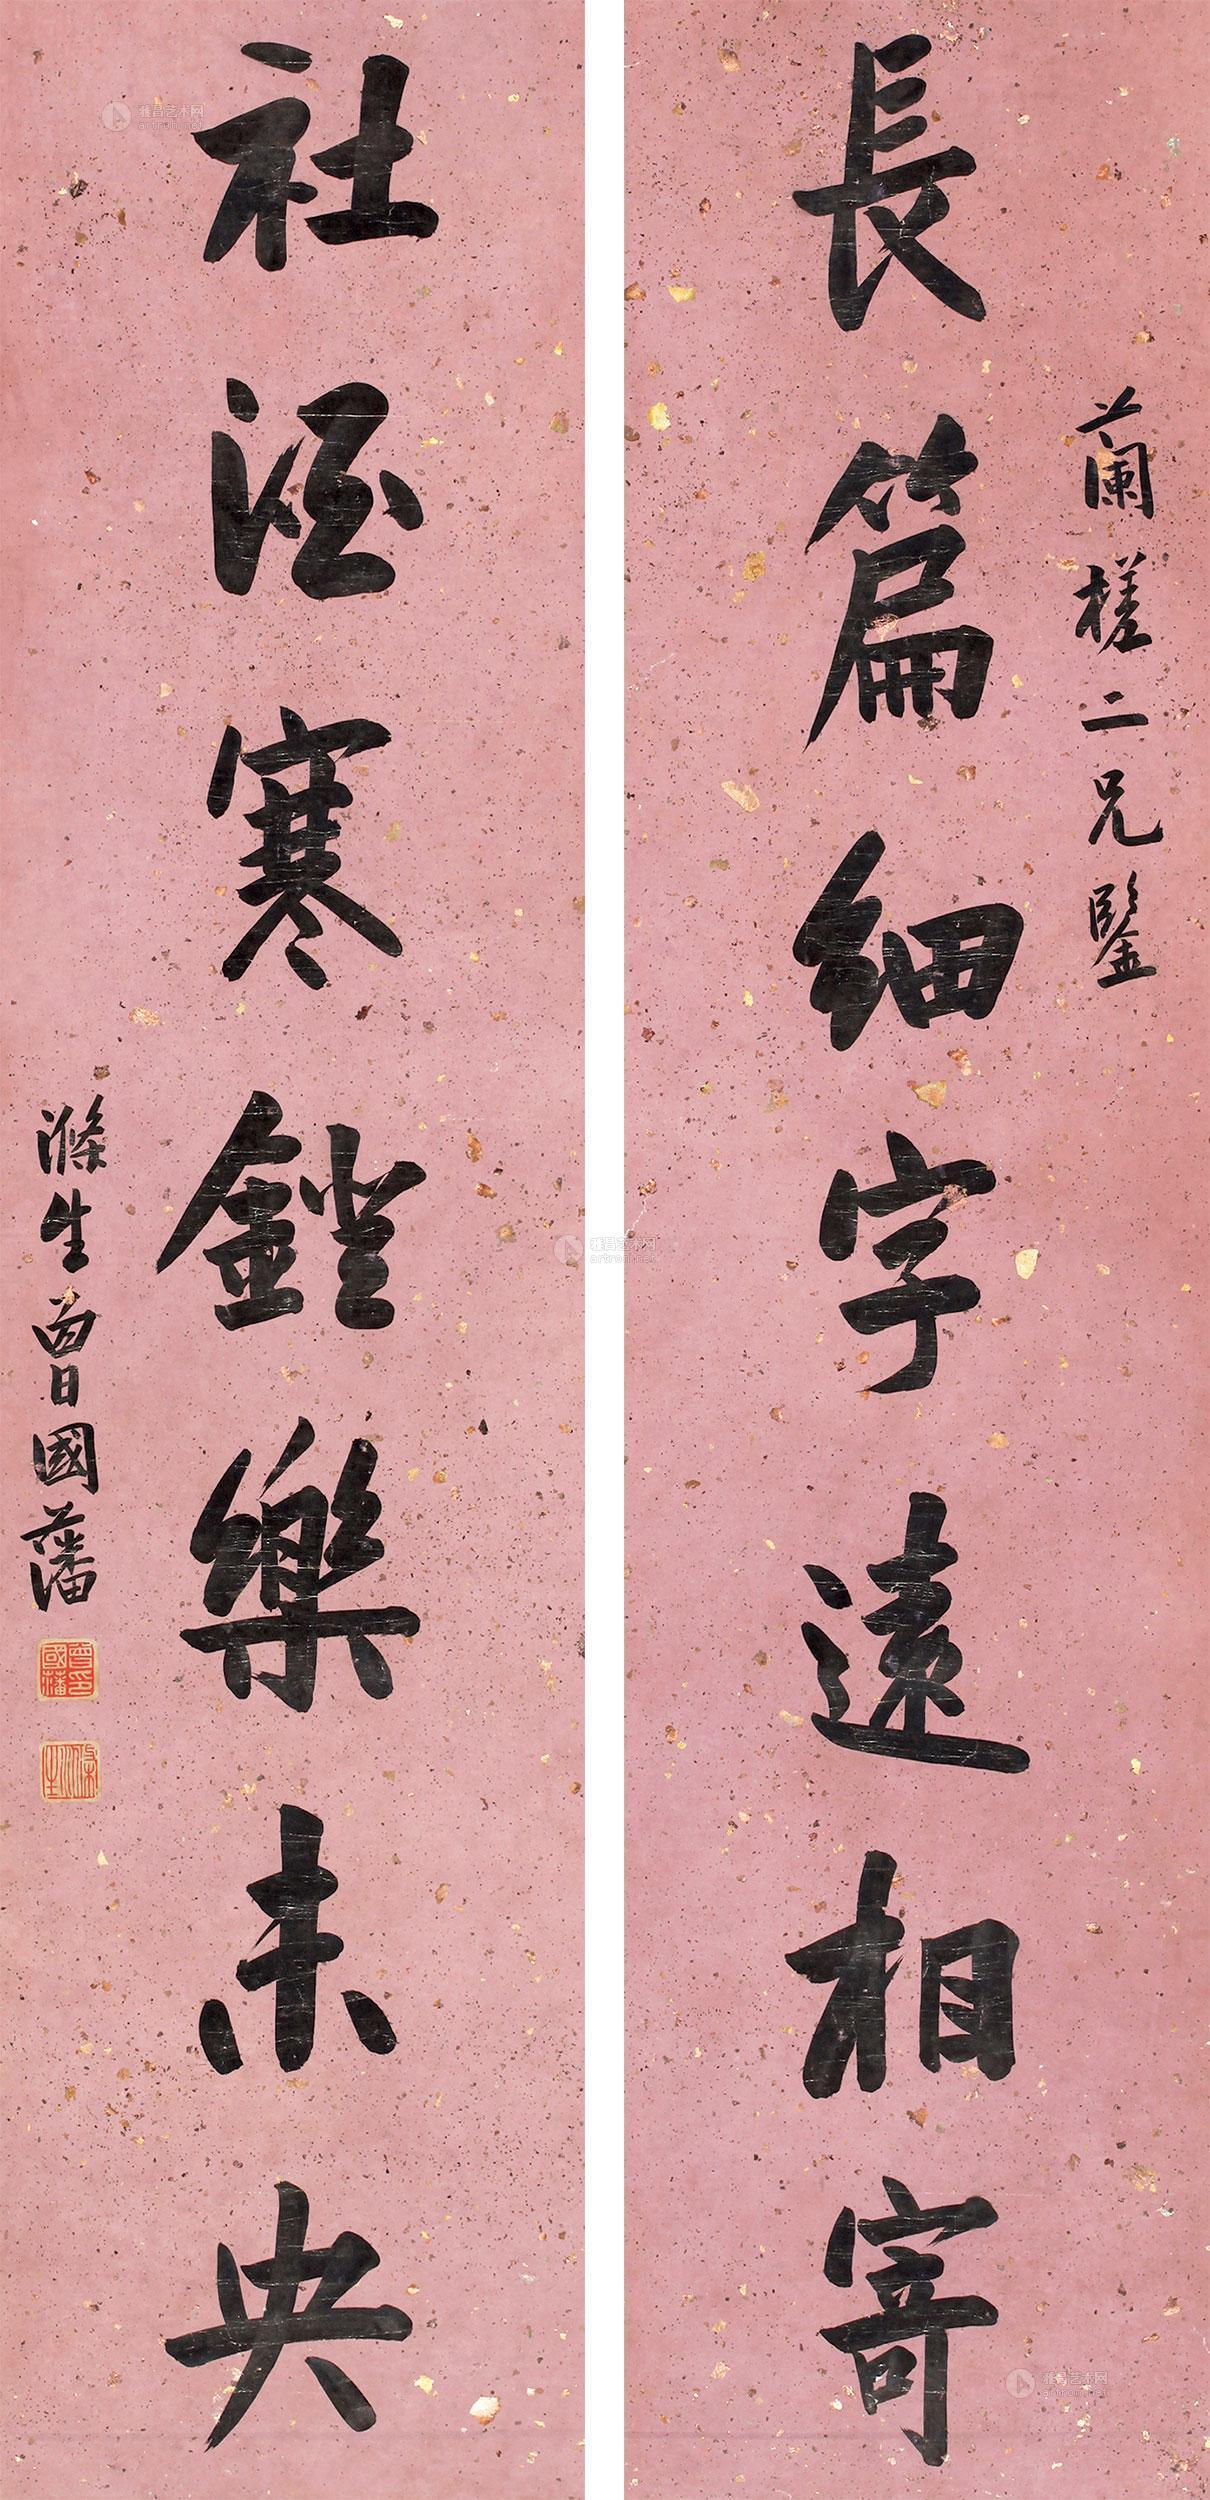 長篇細字遠相寄
蘭槎二兄鑒
社酒寒鐙樂未央
滌生曾國藩
曾國藩印
滌生
雅昌艺术网
artron.net
雅昌艺术网
artron.net
雅昌艺术网
artron.net